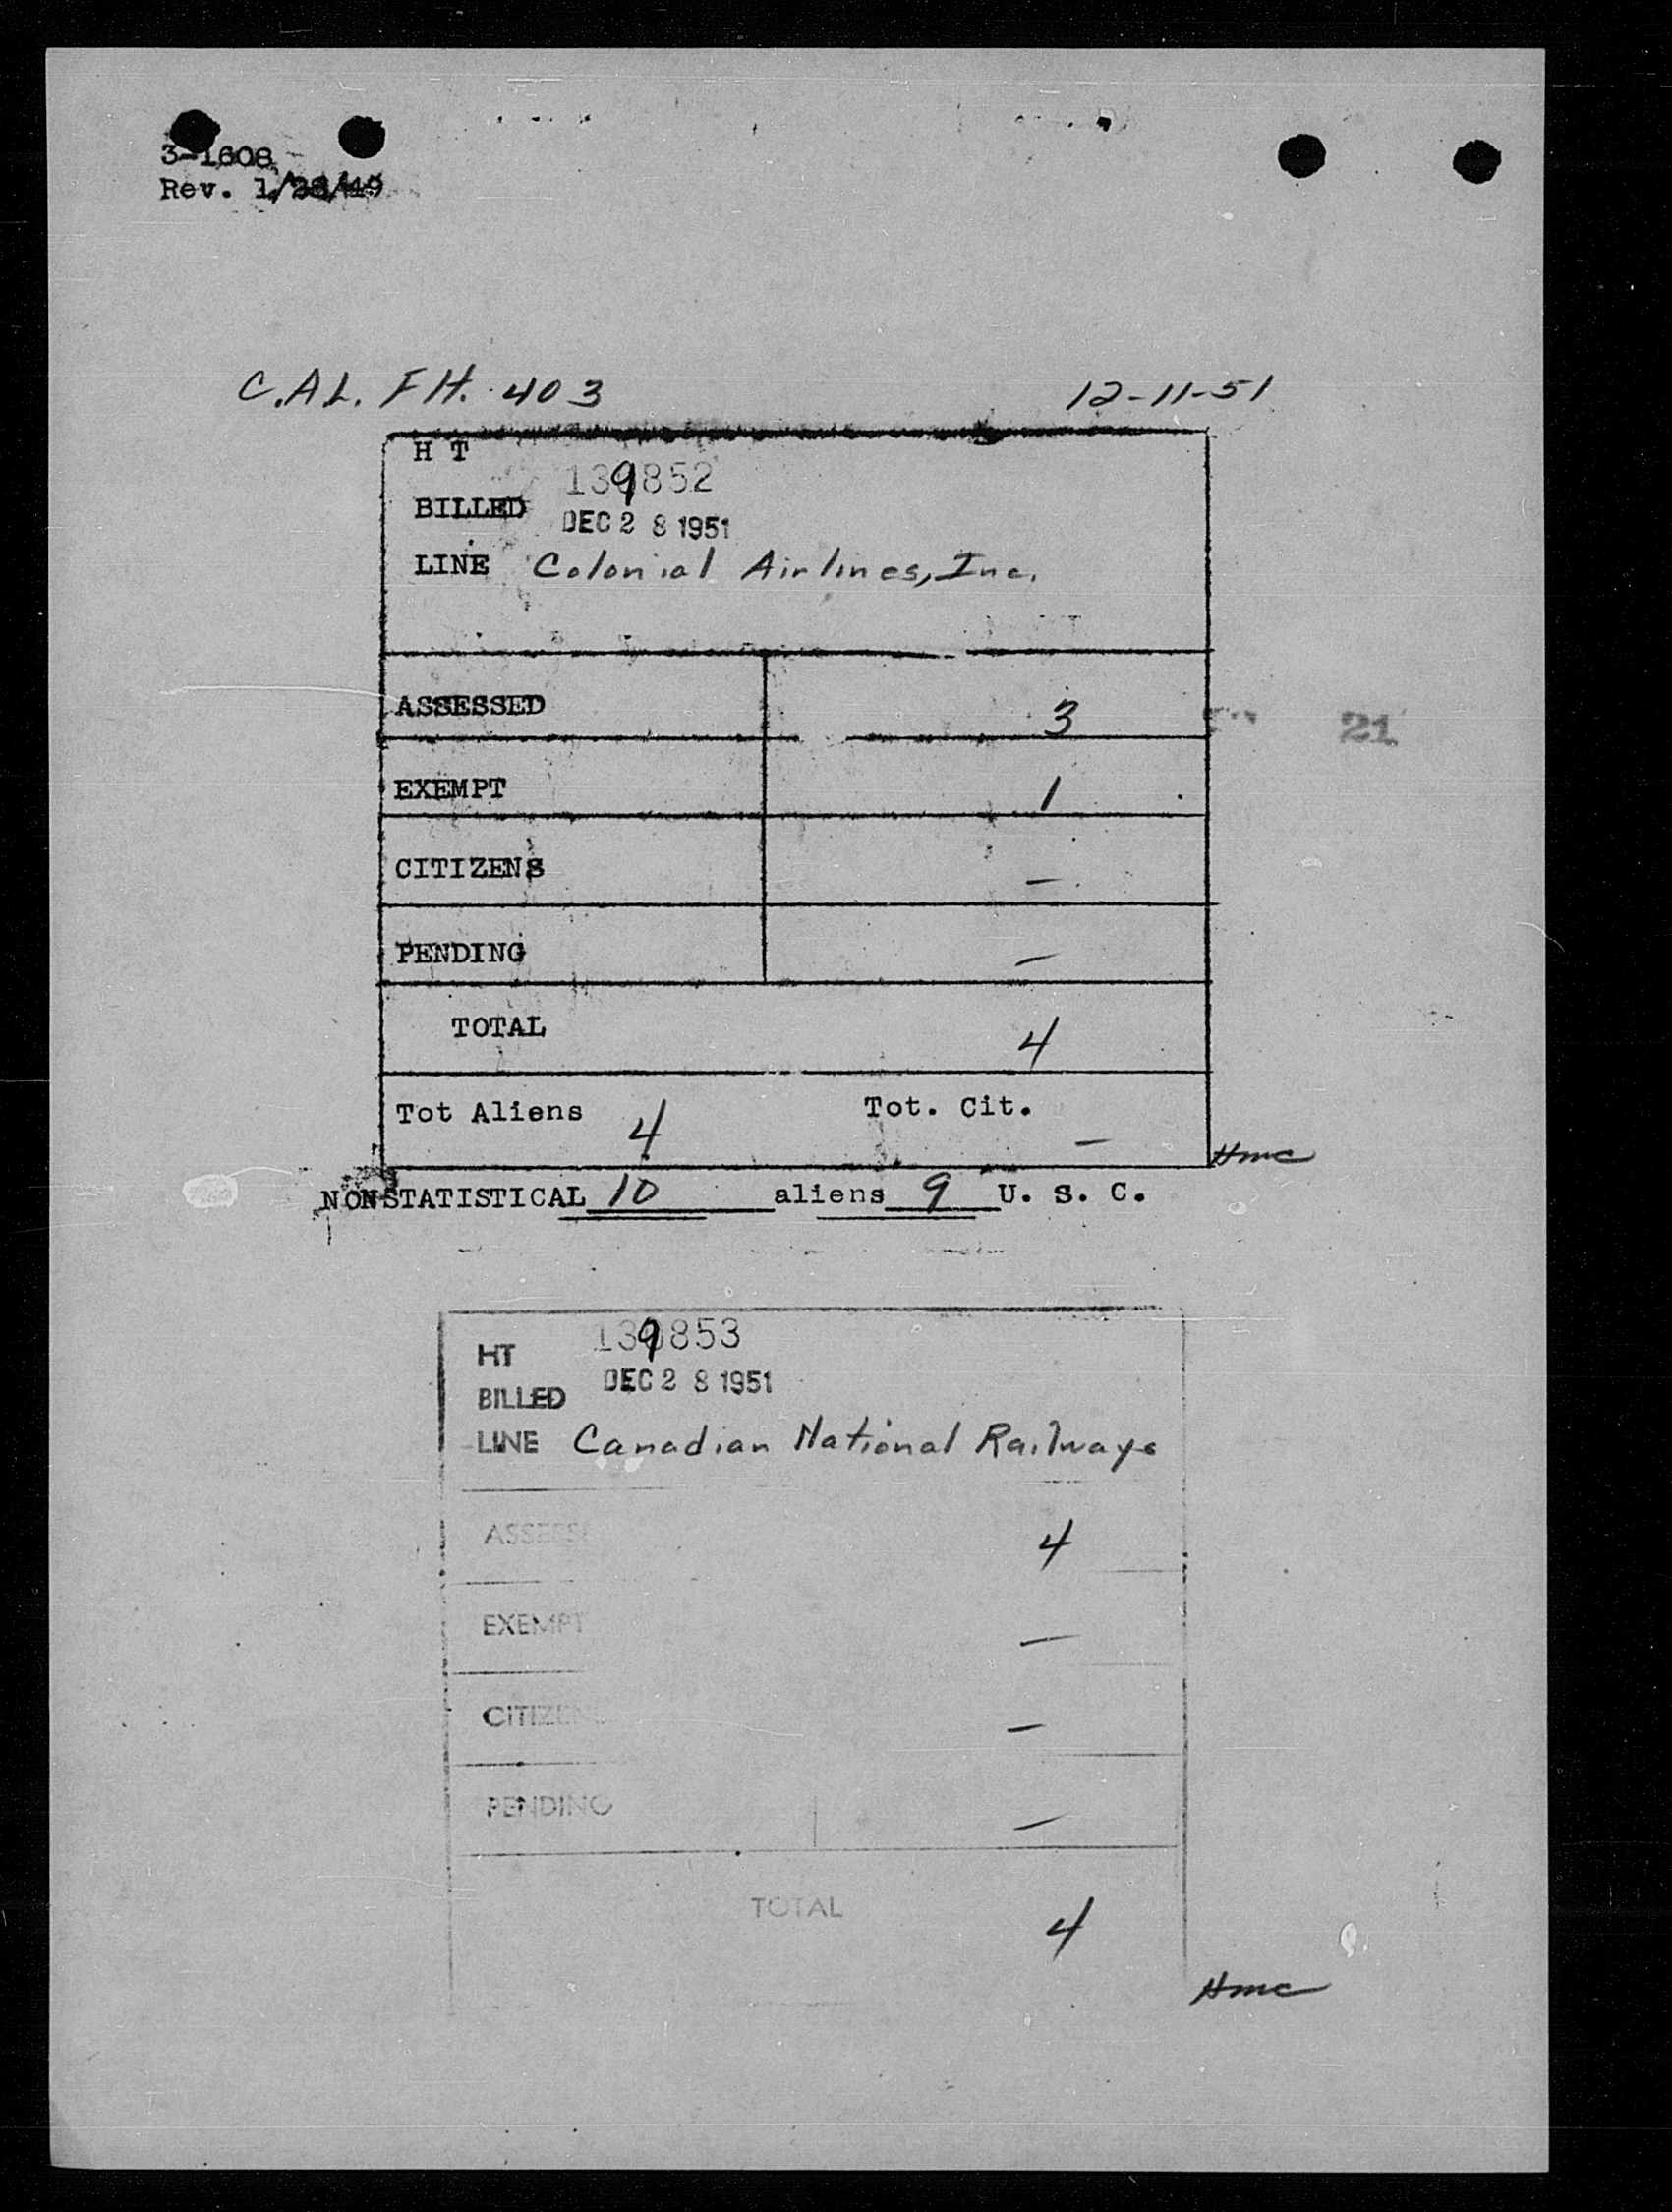 3-1608
Rev. 1/28/49
C.A.L. FH. 403 12-11-51
H T 139852
BILLED DEC 28 1951
LINE Colonial Airlines, Inc.
ASSESSED 3
21
EXEMPT 1
CITIZENS —
PENDING —
TOTAL 4
Tot Aliens 4 Tot. Cit. —
Hmc
NONSTATISTICAL 10 aliens 9 U. S. C.
HT 139853
BILLED DEC 28 1951
LINE Canadian National Railways
ASSESS 4
EXEMPT —
CITIZEN —
PENDING —
TOTAL 4
Hmc